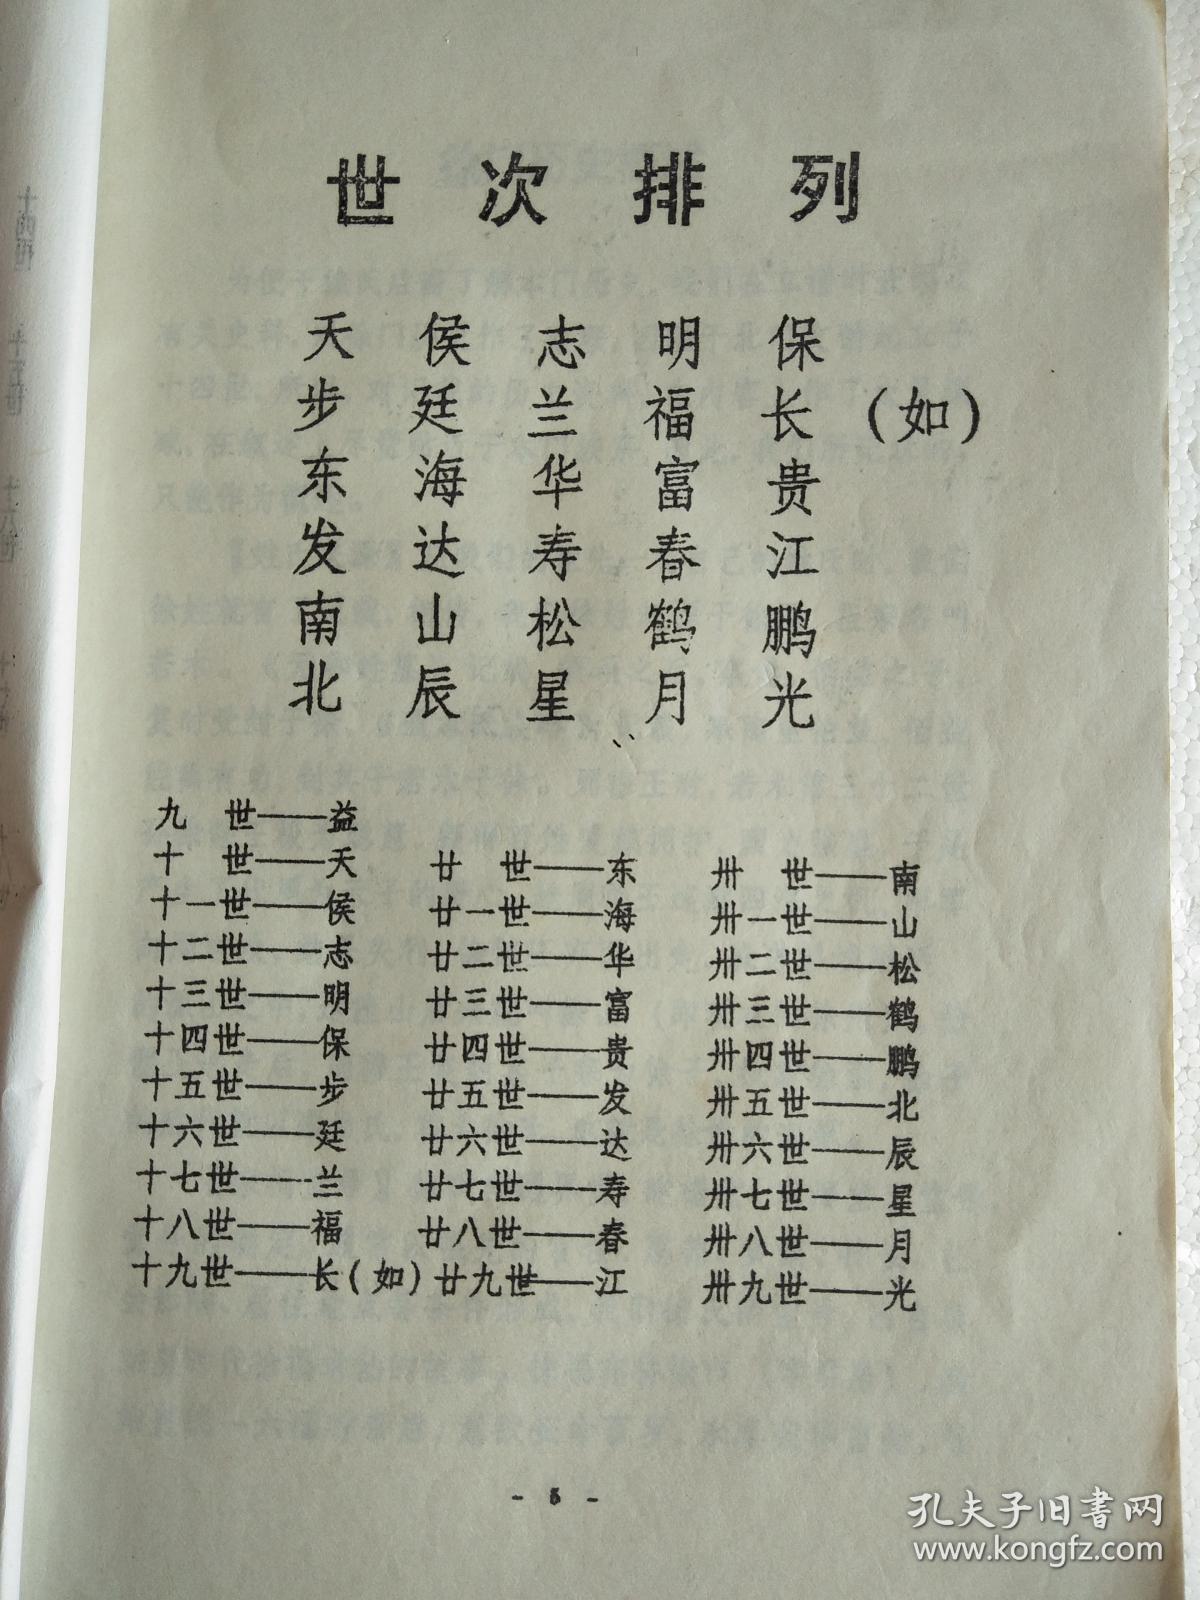 世次排列
天侯志明保
步廷兰福长(如)
东海华富贵
发达寿春江
南山松鹤鹏
北辰星月光
九世——益
十世——天
十一世——侯
十二世——志
十三世——明
十四世——保
十五世——步
十六世——廷
十七世——兰
十八世——福
十九世——长(如)
廿世——东
廿一世——海
廿二世——华
廿三世——富
廿四世——贵
廿五世——发
廿六世——达
廿七世——寿
廿八世——春
廿九世——江
卅世——南
卅一世——山
卅二世——松
卅三世——鹤
卅四世——鹏
卅五世——北
卅六世——辰
卅七世——星
卅八世——月
卅九世——光
- 5 -
孔夫子旧书网
www.kongfz.com